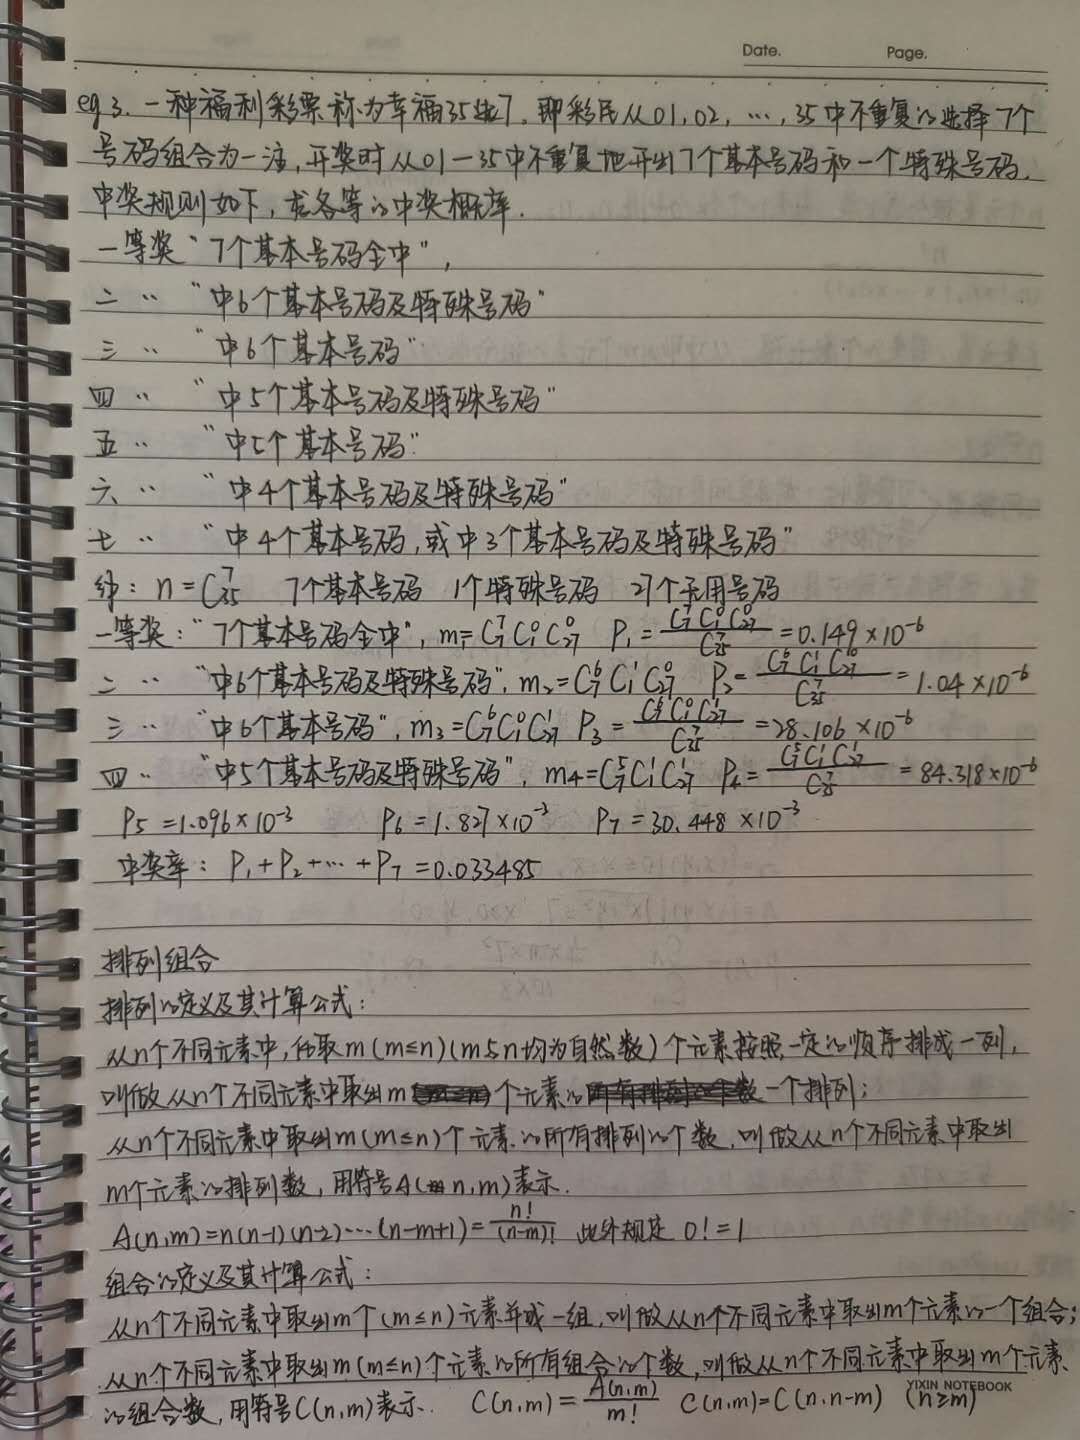 Date. Page.
eg 3. 一种福利彩票称为幸福35选7, 即彩民从01, 02, …, 35中不重复的选择7个
号码组合为一注, 开奖时从01—35中不重复地开出7个基本号码和一个特殊号码.
中奖规则如下, 求各等的中奖概率.
一等奖 "7个基本号码全中",
二 〃 "中6个基本号码及特殊号码"
三 〃 "中6个基本号码"
四 〃 "中5个基本号码及特殊号码"
五 〃 "中5个基本号码"
六 〃 "中4个基本号码及特殊号码"
七 〃 "中4个基本号码, 或中3个基本号码及特殊号码"
解: n = C₃₅⁷ 7个基本号码 1个特殊号码 27个无用号码
一等奖: "7个基本号码全中", m₁=C₇⁷C₁⁰C₂₇⁰ P₁=C₇⁷C₁⁰C₂₇⁰/C₃₅⁷=0.149×10⁻⁶
二 〃 "中6个基本号码及特殊号码", m₂=C₇⁶C₁¹C₂₇⁰ P₂=C₇⁶C₁¹C₂₇⁰/C₃₅⁷=1.04×10⁻⁶
三 〃 "中6个基本号码", m₃=C₇⁶C₁⁰C₂₇¹ P₃=C₇⁶C₁⁰C₂₇¹/C₃₅⁷=28.106×10⁻⁶
四 〃 "中5个基本号码及特殊号码", m₄=C₇⁵C₁¹C₂₇¹ P₄=C₇⁵C₁¹C₂₇¹/C₃₅⁷=84.318×10⁻⁶
P₅=1.096×10⁻³ P₆=1.827×10⁻³ P₇=30.448×10⁻³
中奖率: P₁+P₂+…+P₇=0.033485
排列组合
排列的定义及其计算公式:
从n个不同元素中, 任取m(m≤n)(m与n均为自然数)个元素按照一定的顺序排成一列,
叫做从n个不同元素中取出m个元素的一个排列;
从n个不同元素中取出m(m≤n)个元素的所有排列的个数, 叫做从n个不同元素中取出
m个元素的排列数, 用符号A(n,m)表示.
A(n,m)=n(n-1)(n-2)…(n-m+1)=n!/(n-m)! 此外规定 0!=1
组合的定义及其计算公式:
从n个不同元素中取出m个(m≤n)元素并成一组, 叫做从n个不同元素中取出m个元素的一个组合;
从n个不同元素中取出m(m≤n)个元素的所有组合的个数, 叫做从n个不同元素中取出m个元素
的组合数, 用符号C(n,m)表示. C(n,m)=A(n,m)/m! C(n,m)=C(n,n-m) (n≥m)
YIXIN NOTEBOOK